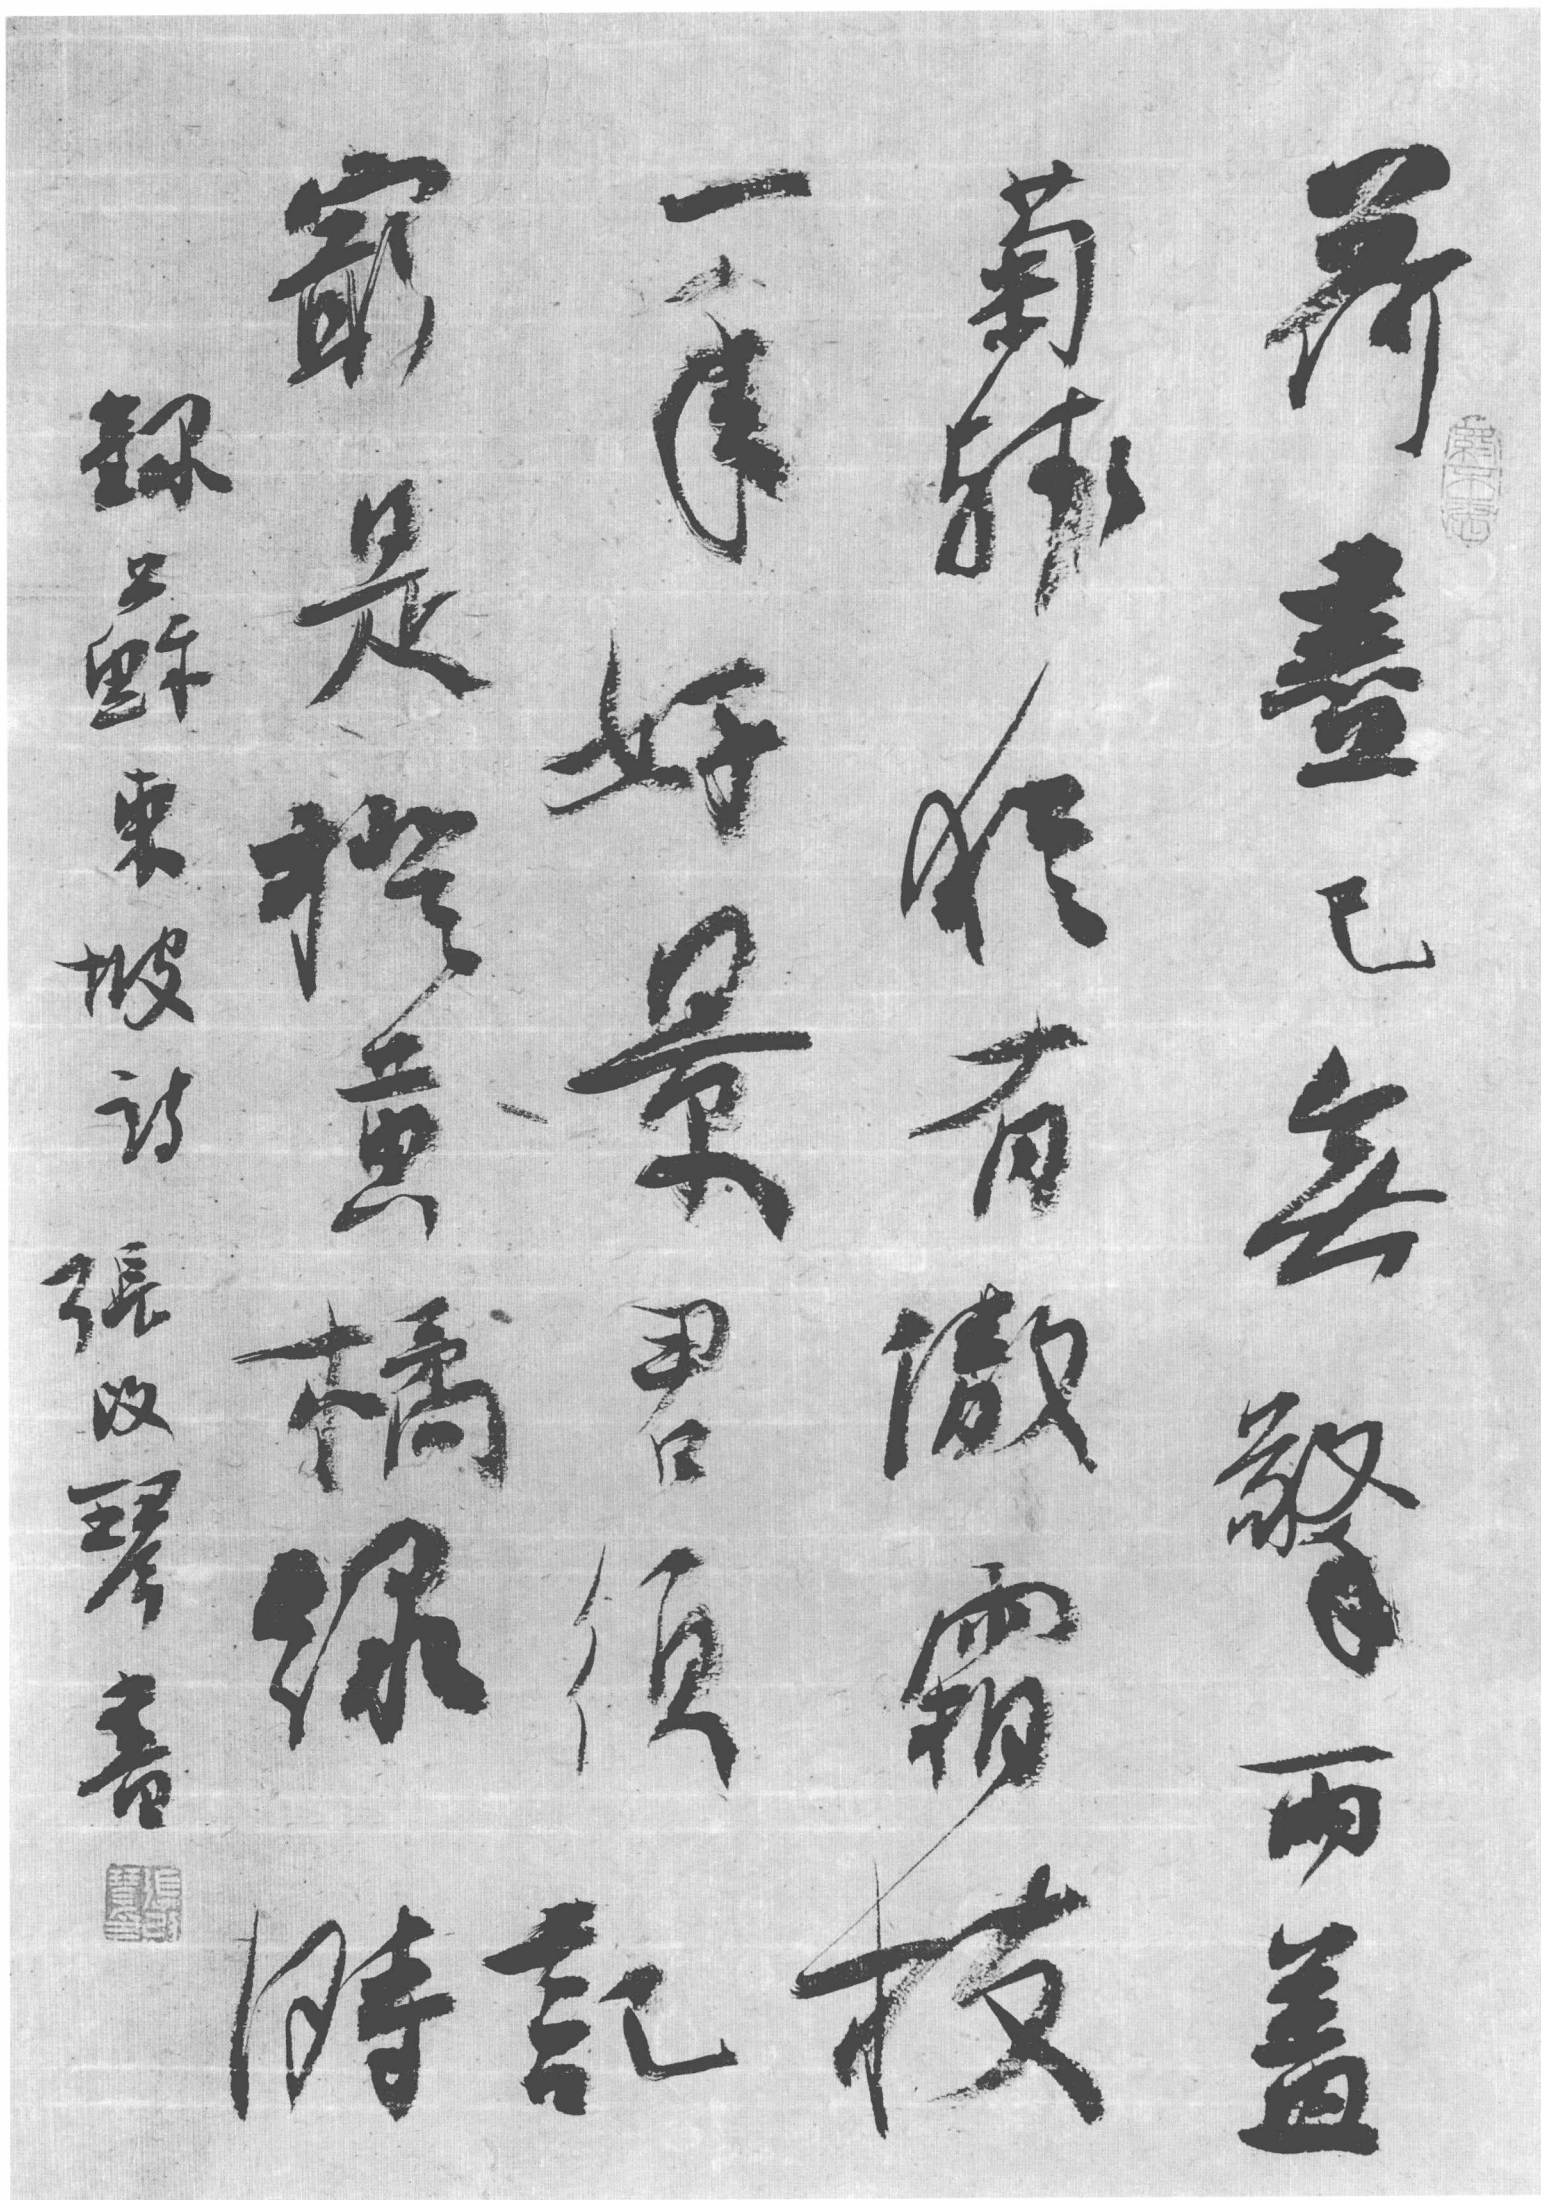 荷盡已無擎雨盖
菊殘猶有傲霜枝
一年好景君須記
最是橙黄橘綠時
録蘇東坡詩 張改琴書